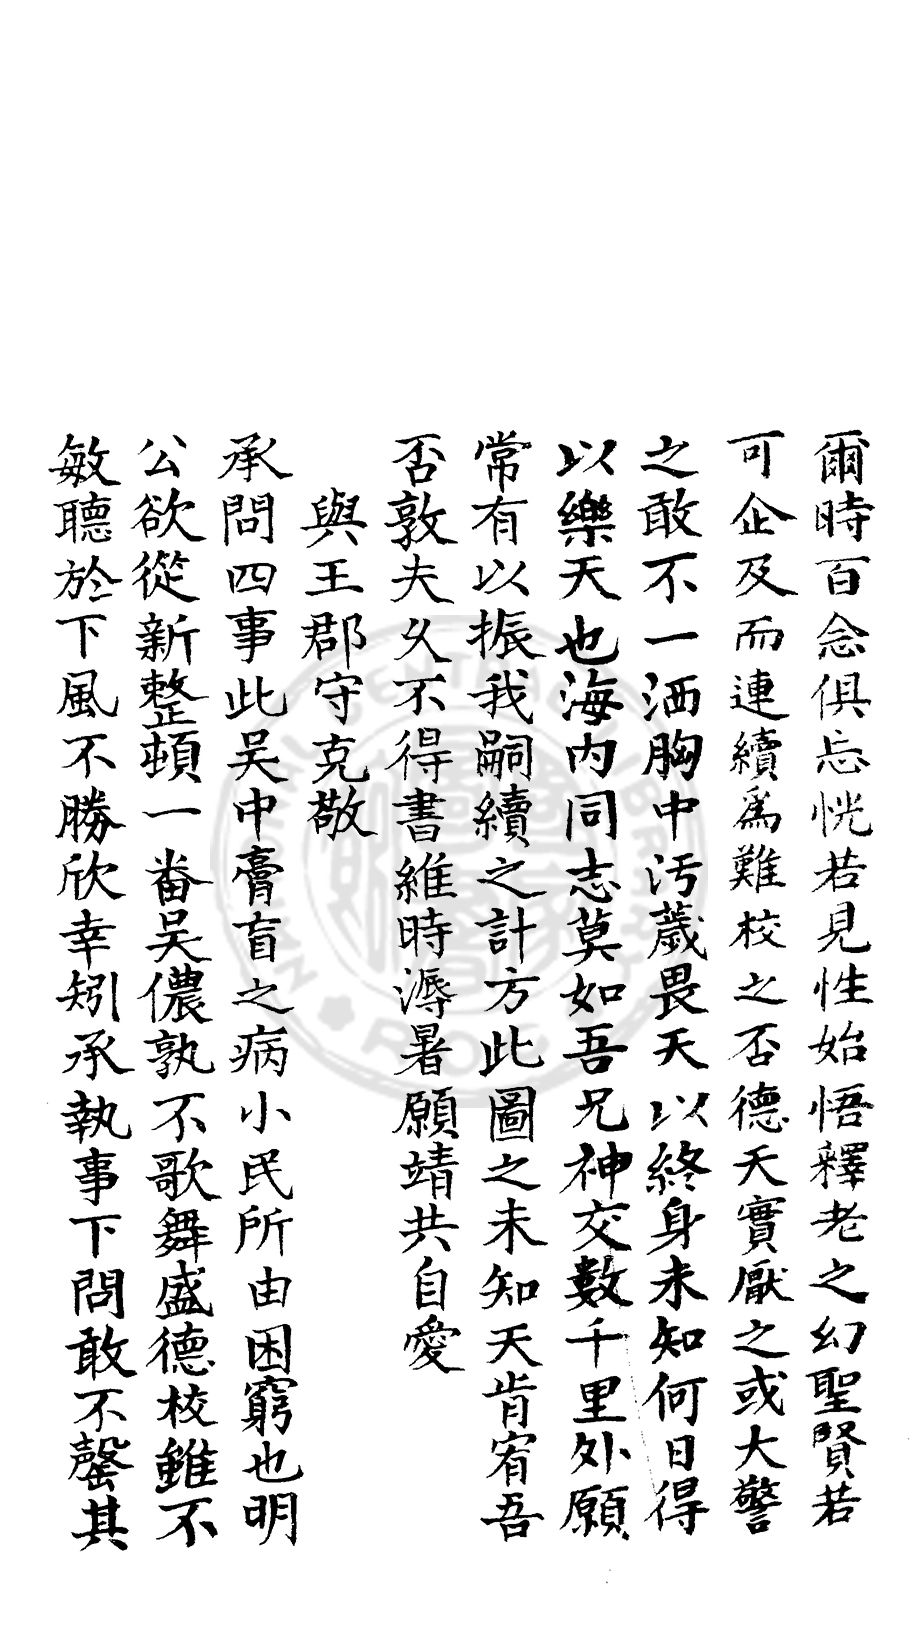 爾時百念俱忘恍若見性始悟釋老之幻聖賢若
可企及而連續爲難校之否德天實厭之或大警
之敢不一洒胸中汚薉畏天以終身未知何日得
以樂天也海內同志莫如吾兄神交數千里外願
常有以振我嗣續之計方此圖之未知天肯宥吾
否敦夫久不得書維時溽暑願靖共自愛
與王郡守克敬
承問四事此吴中膏盲之病小民所由困窮也明
公欲從新整頓一畨吴儂孰不歌舞盛德校雖不
敏聽於下風不勝欣幸矧承執事下問敢不罄其